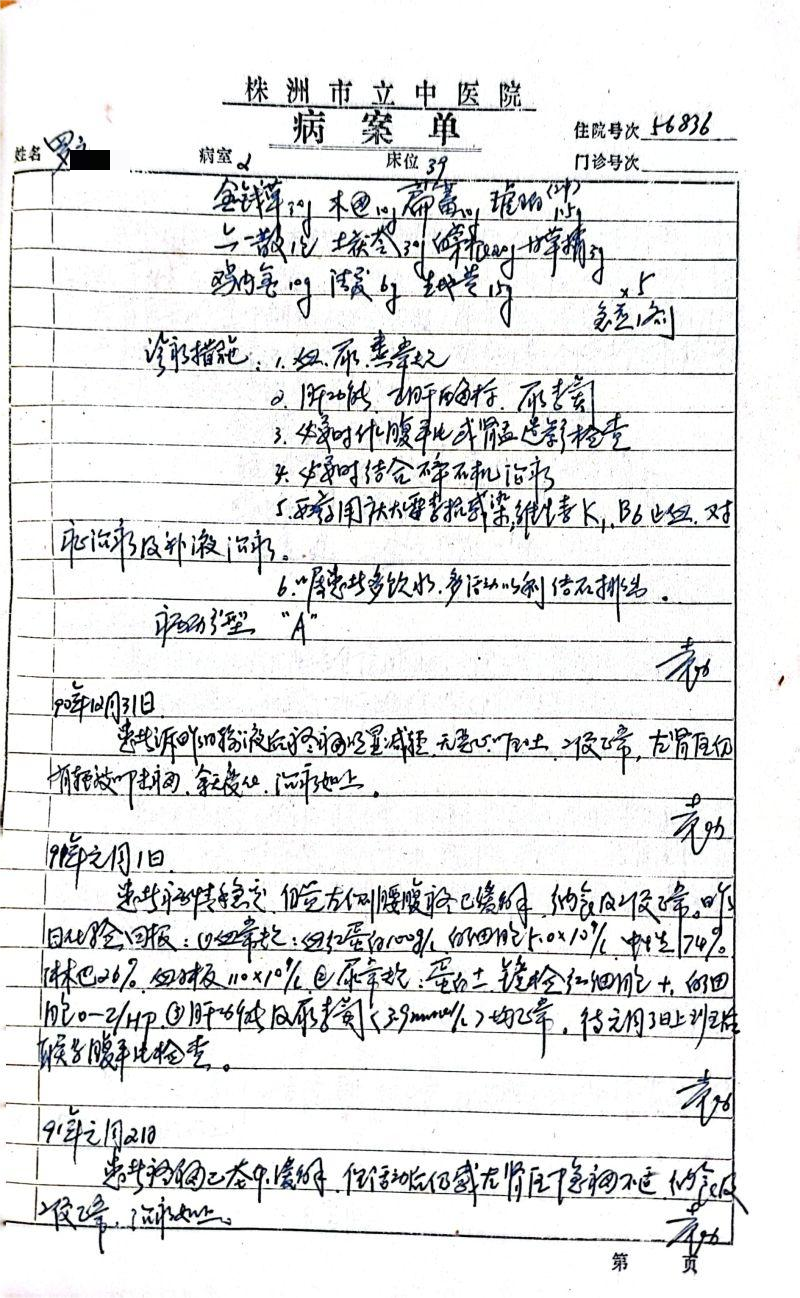 株洲市立中医院
病案单
住院号次 56836
姓名 罗 病室 2 床位 39 门诊号次
金钱草30g 木通10g 萹蓄10g 琥珀(冲)1.5g
六一散1包 土茯苓30g 甘草梢3g
鸡内金10g 生地黄15g
×5
诊疗措施:1. 血、尿、粪常规
2. 肝功能、乙肝两对半、尿素氮
3. 必要时作腹平片或肾盂造影检查
4. 必要时结合碎石机治疗
5. 西药用庆大霉素抗感染,维生素K1、B6止血、对
症治疗及补液治疗。
6. 嘱患者多饮水、多活动以利结石排出。
病历分型 "A"
袁
90年12月31日
患者诉昨日输液后疼痛明显减轻,无恶心呕吐,二便正常,左肾区仍
有轻微叩击痛,余无变化,治疗如上。
袁
91年元月1日
患者病情稳定,仍觉左侧腰腹疼已缓解,纳食及二便正常。昨
日化验回报:①血常规:血红蛋白100g/L 白细胞5.0×10⁹/L 中性74%
淋巴26% 血小板110×10⁹/L ②尿常规:蛋白± 镜检红细胞+,白细
胞0-2/HP ③肝功能及尿素氮(3.9mmol/L)均正常。待元月3日上班后
联系腹平片检查。
袁
91年元月2日
患者疼痛已基本缓解,但活动后仍感左肾区隐痛不适,纳食及
二便正常,治疗如上。
袁
第 页